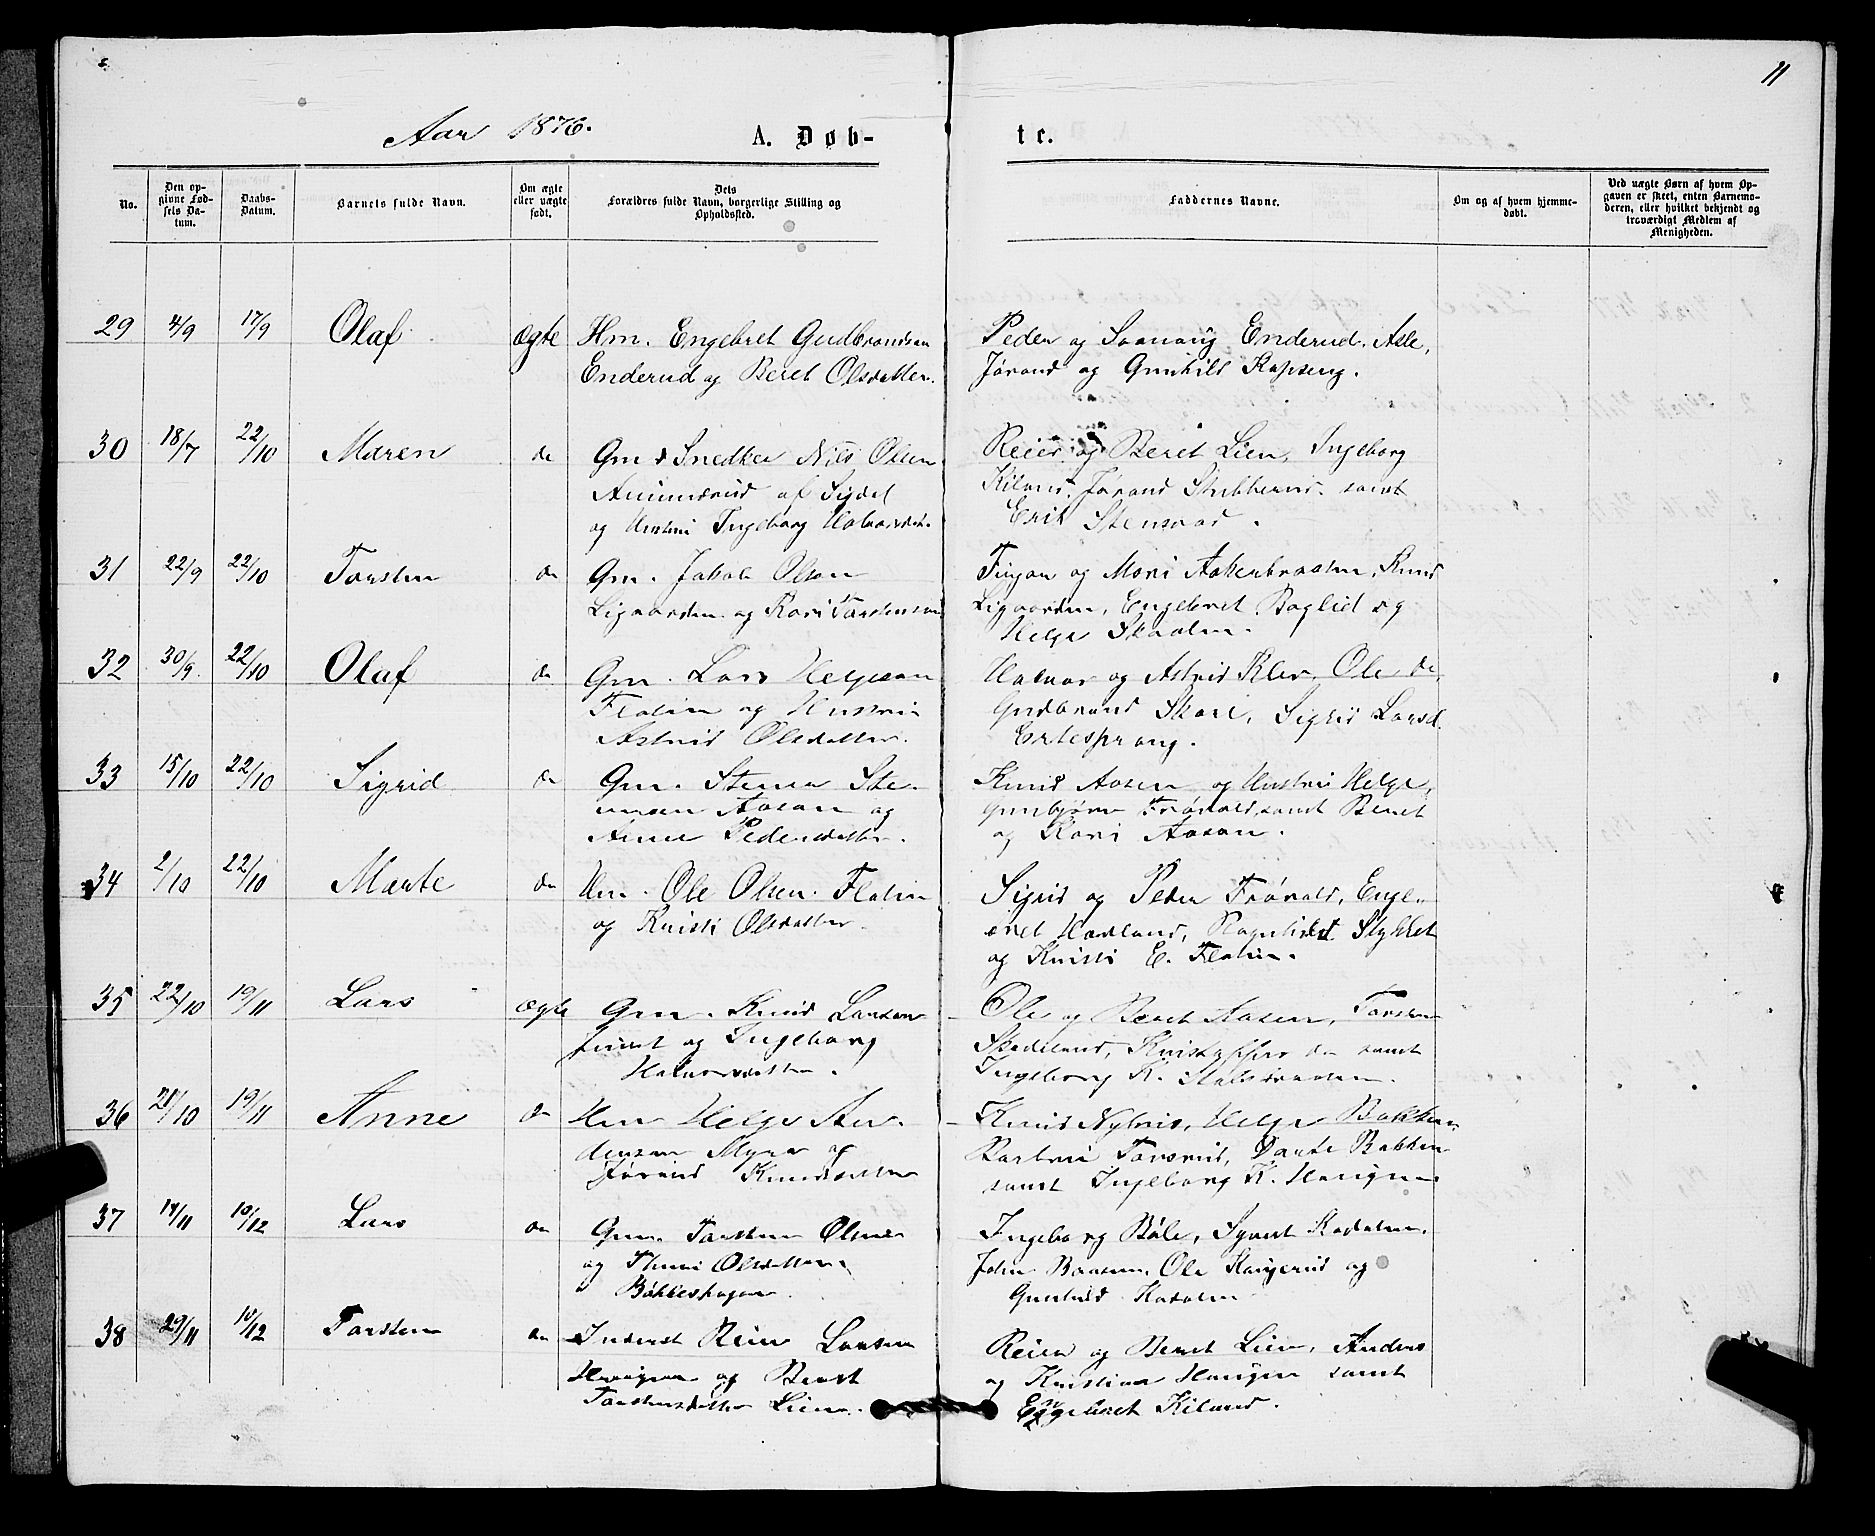 11
Aar 1876.
A. Døb-
te.
No.
Den op-
givne Fød-
sels Da-
tum.
Daabs-
Datum.
Barnets fulde Navn.
Om ægte
eller uægte
født.
Dets
Forældres fulde Navn, borgerlige Stilling og
Opholdssted.
Faddernes Navne.
Om og af hvem hjemme-
døbt.
Ved uægte Børn af hvem Op-
gaven er skeet, enten Barnemo-
deren, eller hvilket bekjendt og
troværdigt Medlem af
Menigheden.
29 4/9 17/9 Olaf ægte Hm. Engebret Gudbrandsen
Enderud og Beret Olsdatter.
Peder og Enderud. Asle,
Jórand og Gunhild Kopseng.
30 18/7 22/10 Maren do Gm Snedker Nils Olsen
af Sigdal
og Hustru Ingeborg Halvorsdat.
Reier og Beret Lien, Ingeborg
Kiland, Jórand Stubberud. samt
Erik Stensrud.
31 22/9 22/10 Torsten do Gm. Jakob Olsen
Ligaarden og Kari Torstensen
og Mari Aakerbraaten, Knud
Ligaarden, Engebret Baglid og
Helge Skaalen.
32 30/9 22/10 Olaf do Gm. Lars Helgesen
Flatin og Hustru
Astrid Olsdatter.
Halvor og Astrid Klev, Ole do,
Gudbrand Skare, Sigrid Larsd.
Ertesprang.
33 15/10 22/10 Sigrid do Gm. Stener Ste-
nersen Aasen og
Anne Pedersdatter.
Knud Aasen og Hustru Helge,
Gunbjørn Frövold, samt Beret
og Kari Aasen.
34 2/10 22/10 Marte do Hm. Ole Olsen Flatin
og Kristi Olsdatter.
Sigrid og Peder Frövold, Enge-
bret Havland, Ragnhild Stykket
og Kristi E. Flatin.
35 22/10 19/11 Lars ægte Gm. Knud Larsen
og Ingeborg
Halvorsdatter.
Ole og Beret Aasen, Torsten
Skadeland, Kristoffer do samt
Ingeborg K.
36 21/10 19/11 Anne do Hm Helge An-
dersen Myra og
Jórand Knudsdatter
Knud Nybrú, Helge Bakken
Barbra Torsrud, Dorte Bakken
samt Ingeborg K. Haugen.
37 14/11 10/12 Lars do Gm. Torsten Olsen
og Olsdatter
Bökkeshagen.
Ingeborg Böle, Synest
John Braaten, Ole Haugerud og
Gunhild
38 29/11 10/12 Torsten do Inderst Reier Larsen
Haugen og Beret
Torstensdatter Lien.
Reier og Beret Lien, Anders
og Kristian Haugen samt
Engebret Kiland.